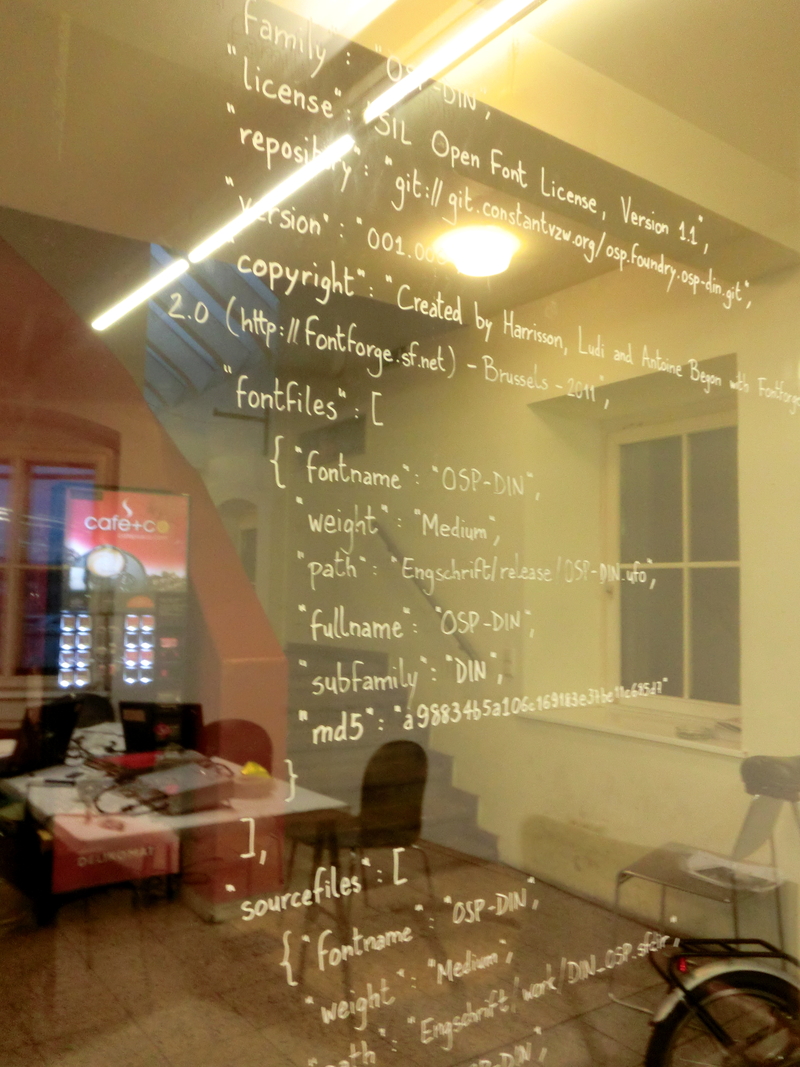 family": "OSP-DIN",
"license": "SIL Open Font License, Version 1.1",
"repository": "git://git.constantvzw.org/osp.foundry.osp-din.git",
"version": "001.00
"copyright": "Created by Harrisson, Ludi and Antoine Begon with Fontforge
2.0 (http://fontforge.sf.net) - Brussels - 2011",
"fontfiles": [
{ "fontname": "OSP-DIN",
"weight": "Medium",
"path": "Engschrift/release/OSP-DIN.ufo",
"fullname": "OSP-DIN",
"subfamily": "DIN",
"md5":
}
],
"sourcefiles": [
{ "fontname": "OSP-DIN",
"weight": "Medium",
"path": "Engschrift/work/DIN_OSP.sfdir",
OSP-DIN",
cafe+co
DELIKOMAT